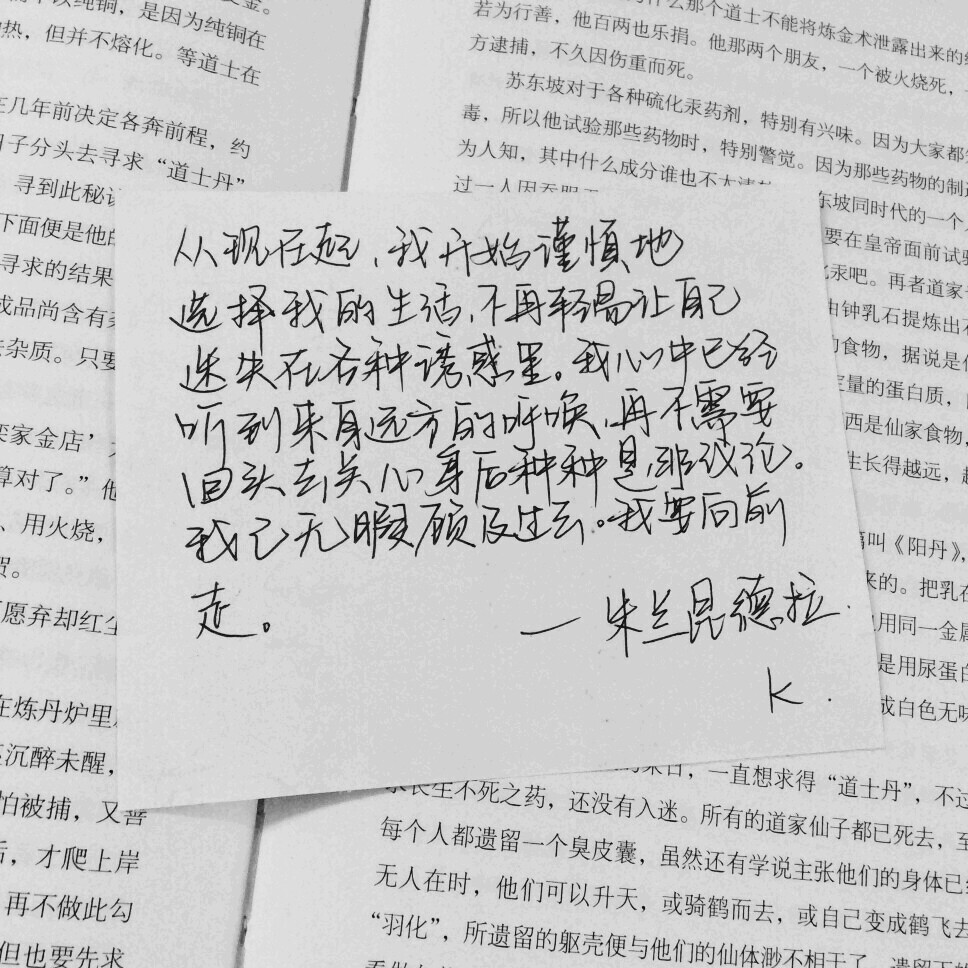 从现在起,我开始谨慎地
选择我的生活,不再轻易让自己
迷失在各种诱惑里。我心中已经
听到来自远方的呼唤,再不需要
回头去关心身后种种是非议论。
我已无暇顾及过去。我要向前
走。
— 朱兰昆德拉.
K.
不以纯铜,是因为纯铜在
热,但并不熔化。等道士在
在几年前决定各奔前程,约
日子分头去寻求“道士丹”
寻到此秘
下面便是他的
寻求的结果
成品尚含有
杂质。只要
栾家金店’
算对了。”他
、用火烧,
贺。
愿弃却红尘
在炼丹炉里
沉醉未醒,
怕被捕,又善
后,才爬上岸
再不做此勾
但也要先求
什么那个道士不能将炼金术泄露出来的
若为行善,他百两也乐捐。他那两个朋友,一个被火烧死,
方逮捕,不久因伤重而死。
苏东坡对于各种硫化汞药剂,特别有兴味。因为大家都
毒,所以他试验那些药物时,特别警觉。因为那些药物的制造
为人知,其中什么成分谁也不太清
过一人因吞服
东坡同时代的一个
要在皇帝面前试验
汞吧。再者道家
由钟乳石提炼出
的食物,据说是
定量的蛋白质,
西是仙家食物,
生长得越远,
叫《阳丹》,
来的。把乳在
用同一金属
是用尿蛋白
成白色无味
来日,一直想求得“道士丹”,不过
求长生不死之药,还没有入迷。所有的道家仙子都已死去,至
每个人都遗留一个臭皮囊,虽然还有学说主张他们的身体已
无人在时,他们可以升天,或骑鹤而去,或自己变成鹤飞去
“羽化”,所遗留的躯壳便与他们的仙体渺不相干了。遗留下的